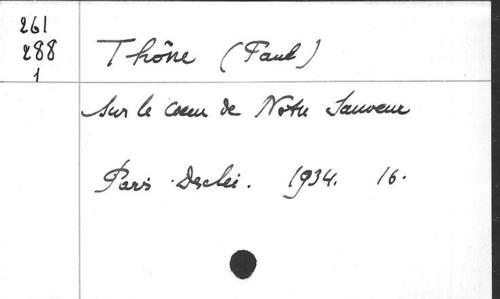 261
288
1
Thône (Paul)
Sur le cœur de Notre Sauveur
Paris Desclée. 1934. 16.